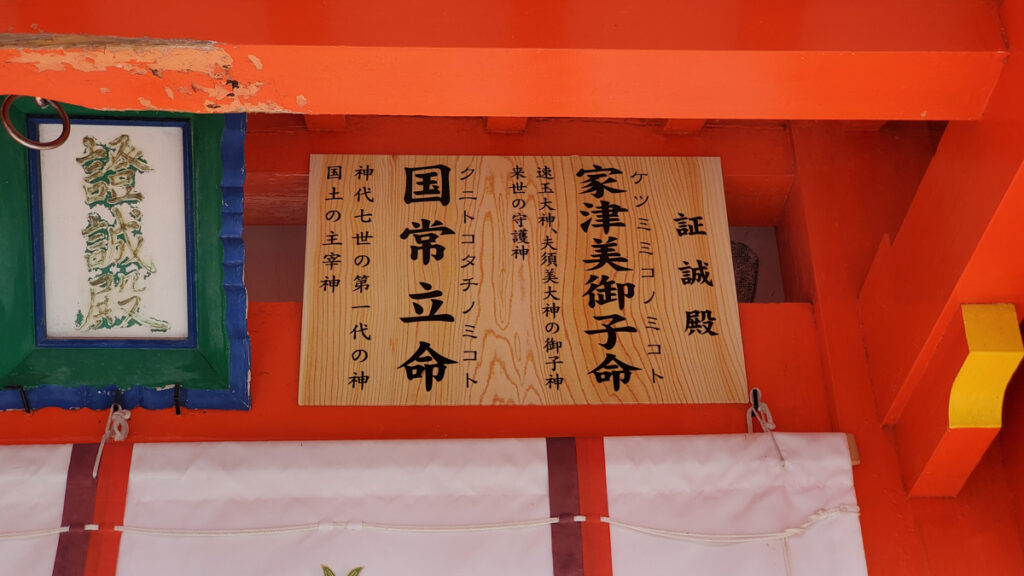 証誠殿
ケツミミコノミコト
家津美御子命
速玉大神、夫須美大神の御子神
来世の守護神
クニトコタチノミコト
国常立命
神代七世の第一代の神
国土の主宰神
證誠殿